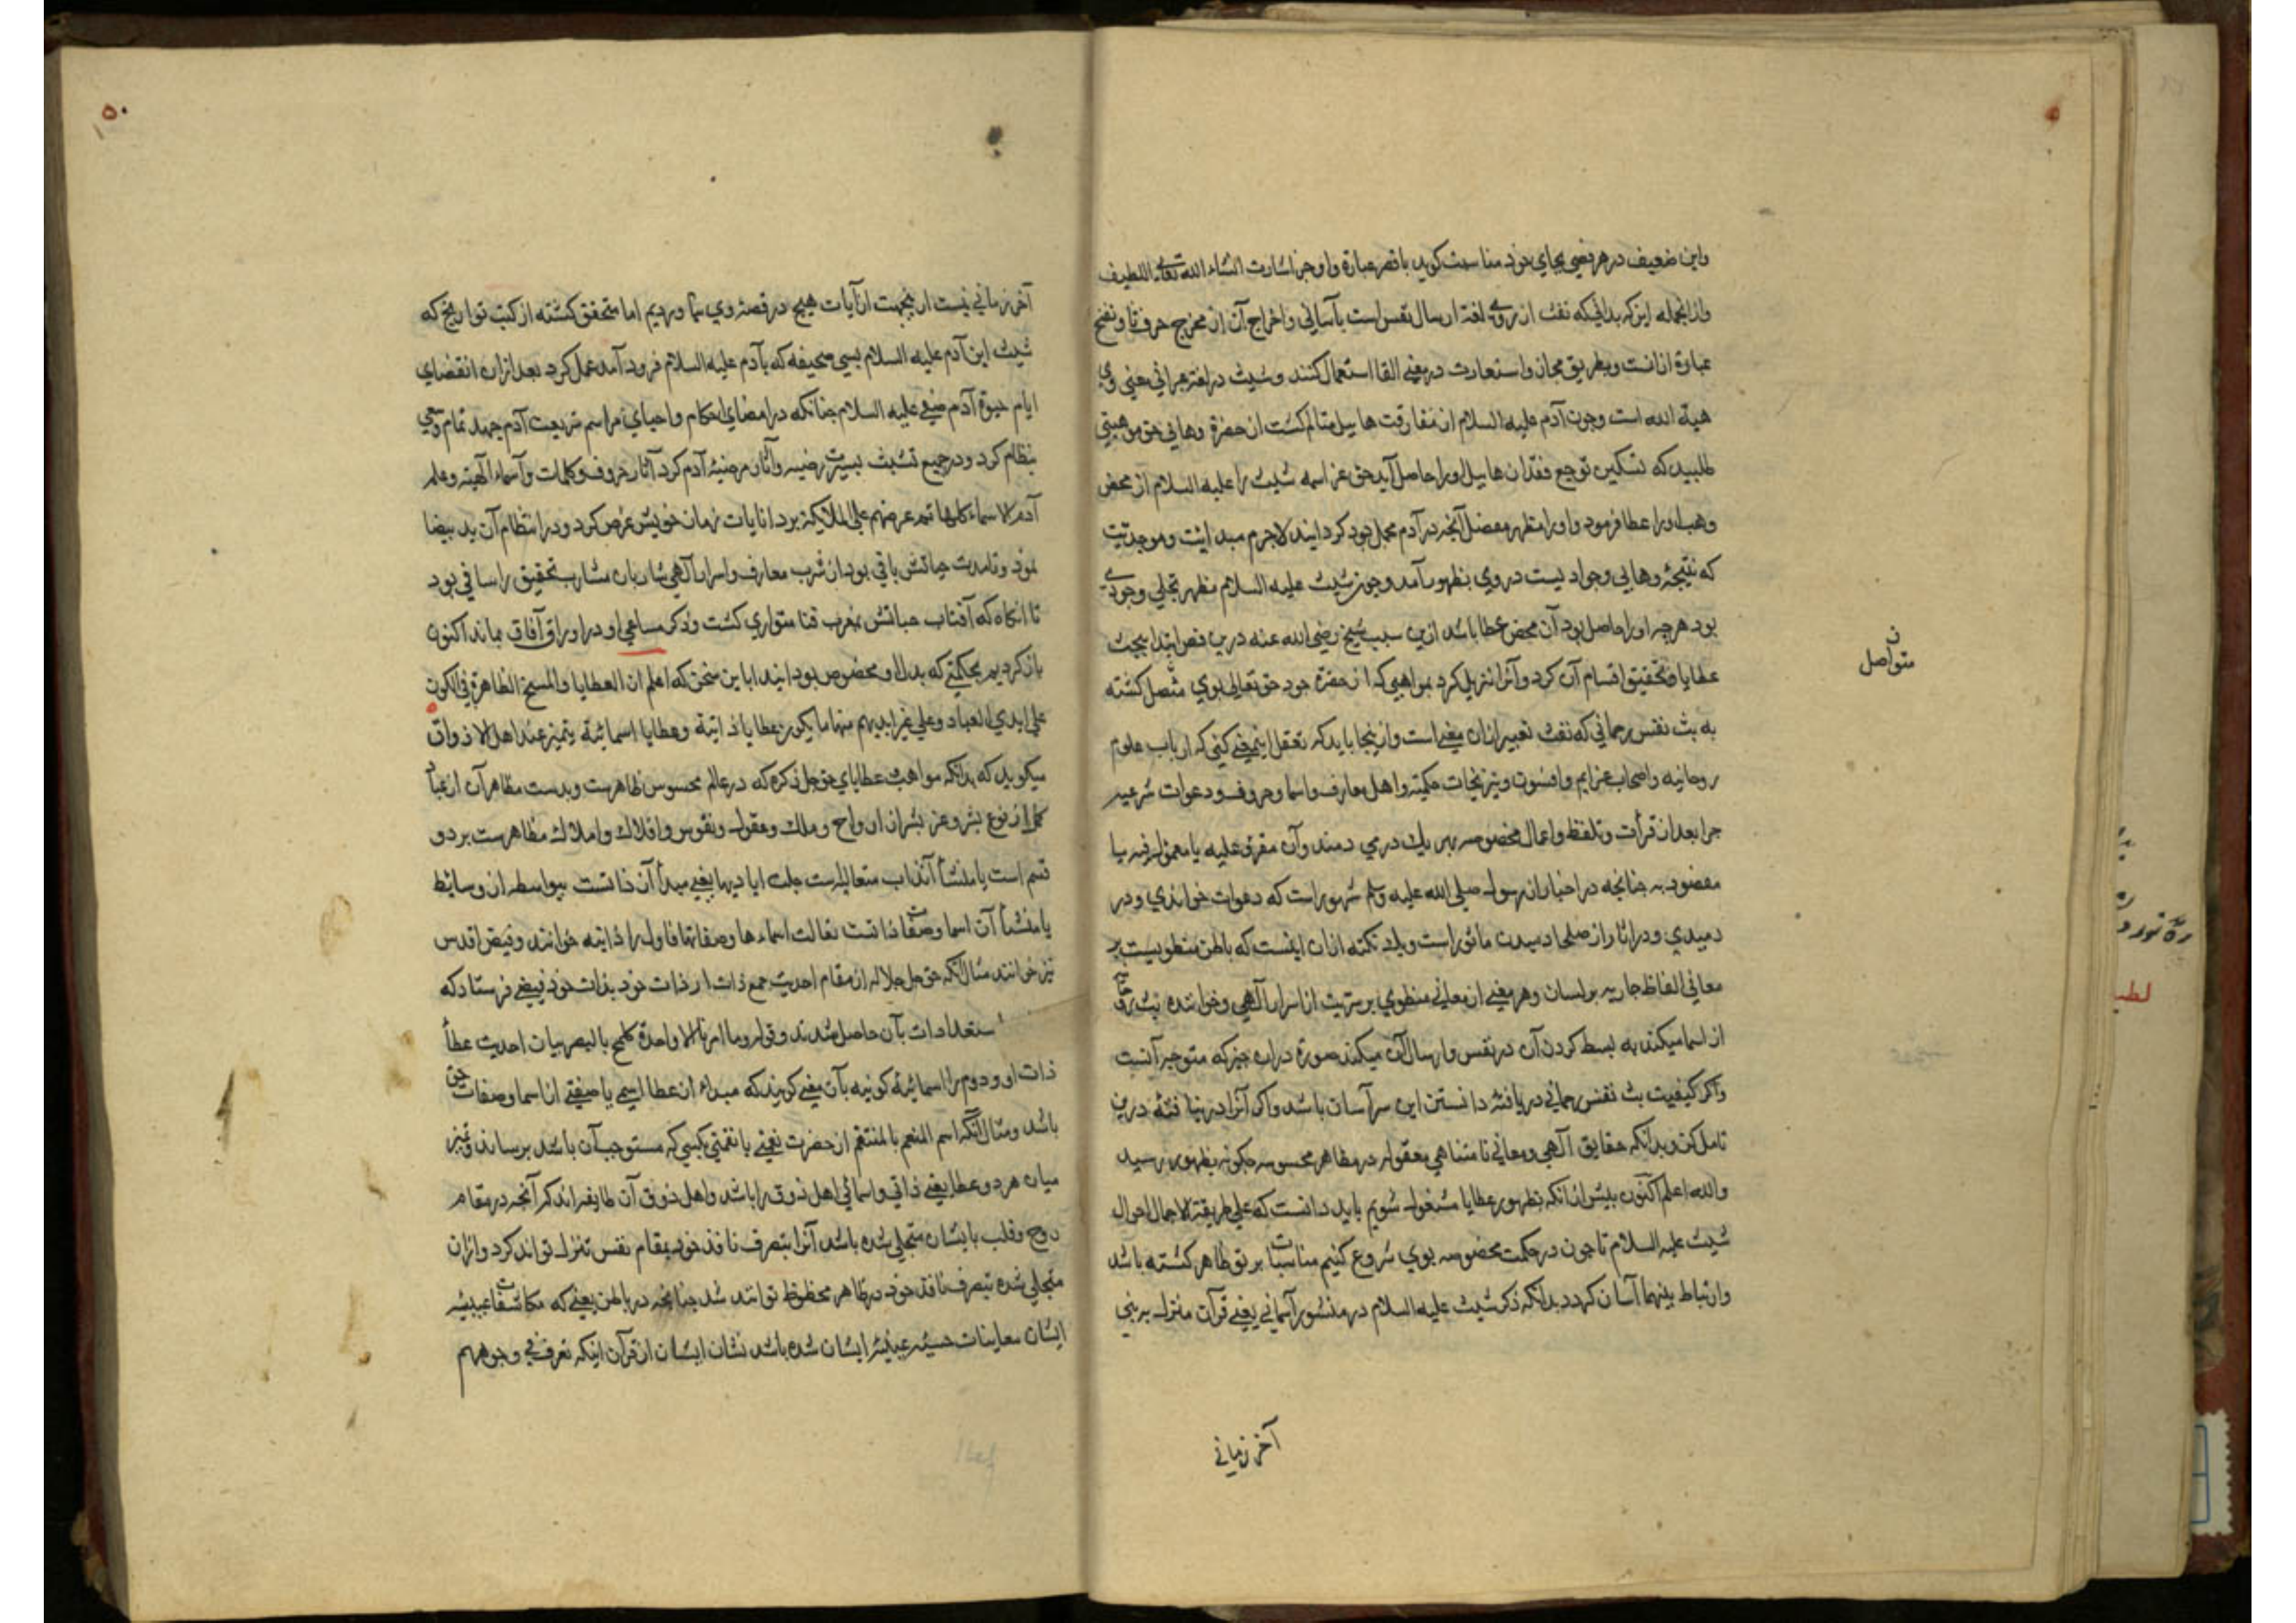 واین ضعیف در هر فصی بجای خود مناسبت کوید باقصر عبارة واوجز اشارت انشاء الله تعالی اللطیف
وازانجمله این که بدانی که نفث از روی لغة ارسال نفس است بآسانی واخراج آن از مخرج حرف ثا ونفخ
عبارة ازانست وبطریق مجاز واستعارت در معنی القا استعمال کنند وشیث در لغة عبرانی معنی وی
هبة الله است وچون آدم علیه السلام از مفارقت هابیل متالم کشت از حضرة وهابی حق من هبتی
طلبید که تسکین توجع فقدان هابیل اورا حاصل آید حق عز اسمه شیث را علیه السلام از محض
وهب اورا عطا فرمود واورا مظهر مفصل آنچه در آدم مجمل بود کردانید لاجرم مبدائیت وموجدیت
که نتیجۀ وهابی وجوادیست در وی بظهور آمد وچون شیث علیه السلام مظهر تجلی وجودی
بود هرچه اورا حاصل بود آن محض عطا باشد ازین سبب شیخ رضی الله عنه درین فص ابتدا ببحث
عطایا وتحقیق اقسام آن کرد وآنرا تنزیل کرد بمواهبی که از حضرة جود حق تعالی بوی متصل کشته
ن
متواصل
به بث نفس رحمانی که نفث تعبیر ازان معنی است وازینجا باید که تعقل اینمعنی کنی که ارباب علوم
روحانیه واصحاب عزایم وافسون ونیرنجات حکمیه واهل معارف واسما وحروف ودعوات شرعیه
چرا بعد از قرأت وتلفظ واعمال مخصوصه بهر یك در می دمند وآن مقرؤ علیه یا معمول فیه یا
مقصود به چنانچه در اخبار از رسول صلی الله علیه وسلم مشهور است که دعوات خواندی ودر
دمیدی ودر اثار از صلحا دمیدن ماثور است ویك نکته ازان اینست که باطن منطویست بر
معانی الفاظ جاریه بر لسان وهر معنی از معانی منطوی بر سریت از اسرار آلهی وخواننده بث
از اسما میکند به بسط کردن آن در نفس وارسال آن میکند صورة دران چیز که متوجه آنست
واکر کیفیت بث نفس رحمانی دریافتۀ دانستن این سر آسان باشد واکر آنرا در نیافتۀ درین
تامل کن وبدانکه حقایق آلهی ومعانی نامتناهی معقوله در مظاهر محسوسه چکونه بظهور رسید
والله اعلم اکنون پیش ازانکه بظهور عطایا مشغول شویم باید دانست که علی طریقة الاجمال احوال
شیث علیه السلام تا چون در حکمت مخصوصه بوی شروع کنیم مناسبات بر تو ظاهر کشته باشد
وارتباط بینهما آسان کردد بدانکه ذکر شیث علیه السلام در منشور آسمانی یعنی قرآن منزل بر نبی
آخر زمانی
۱۵۰
آخر زمانی نیست ازینجهت از آیات هیچ در قصۀ وی نیاوردیم اما متحقق کشته از کتب تواریخ که
شیث ابن آدم علیه السلام بسی صحیفه که بآدم علیه السلام فرود آمد عمل کرد بعد ازان انقضای
ایام حیوة آدم صفی علیه السلام چنانکه در امضای احکام واحیای مراسم شریعت آدم جهد تمام وسعی
بنظام کرد ودر جمیع تشبث بسیرت رضیه وآثار مرضیۀ آدم کرد آثار حروف وکلمات وآسماء آلهیه وعلم
آدم الاسماء کلها ثم عرضهم علی الملائکة بر دانایات زمان خویش عرض کرد ودر انتظام آن ید بیضا
نمود وتا مدت حیاتش باقی بود از شرب معارف واسرار آلهی شاربان مشارب تحقیق را ساقی بود
تا انکاه که آفتاب حیاتش بمغرب فنا متواری کشت وذکر مساعی او در اوراق آفاق بماند اکنون
باز کردیم بحکمتی که بدل او مخصوص بود ابتدا باین سخن که اعلم ان العطایا والمنح الظاهرة فی الکون
علی ایدی العباد وعلی غیر ایدیهم منها ما یکون عطایا ذاتیة وعطایا اسمائیة یتمیز عند اهل الاذواق
میکوید که بدانکه مواهب عطایای حق جل ذکره که در عالم محسوس ظاهرست وبدست مظاهر آن از عباد
کمل از نوع بشر وغیر بشر از ارواح وملك وعقول ونفوس وافلاك واملاك مظاهرست بر دو
قسم است یا منشأ آن ذات متعالیه است جلت ایادیها یعنی مبدأ آن ذاتست بیواسطه از وسایط
یا منشأ آن اسما وصفات ذاتست تعالت اسماءها وصفاتها فاول را ذاتیه خوانند وفیض اقدس
نیز خوانند مثال آنکه حق جل جلاله از مقام احدیت جمع ذات از ذات خود بذات خود فیضی فرستاد که
استعدادات بآن حاصل شدند وقوله وما امرنا الا واحدة کلمح بالبصر بیان احدیت عطأ
ذات او ودوم را اسمائیۀ کونیه بآن معنی کویند که مبداء ان عطا اسمی یا صفتی از اسما وصفات حق
باشد ومثال آنکه اسم المنعم یا المنتقم از حضرت نعمتی یا نقمتی بکسی که مستوجب آن باشد برساند وتمیز
میان هر دو عطا یعنی ذاتی واسمائی اهل ذوق را باشد واهل ذوق آن طایفه اند که آنچه در مقام
روح وقلب بایشان متجلی شده باشد آنرا بتصرف نافذ خود بمقام نفس تنزل تواند کرد وازان
متجلی شده بتصرف نافذ خود در ظاهر محظوظ توانند شد چنانچه در باطن یعنی که مکاشفات غیبیه
ایشان معاینات حسیه عینیۀ ایشان شده باشد نشان ایشان از قرآن اینکه تعرف فی وجوههم